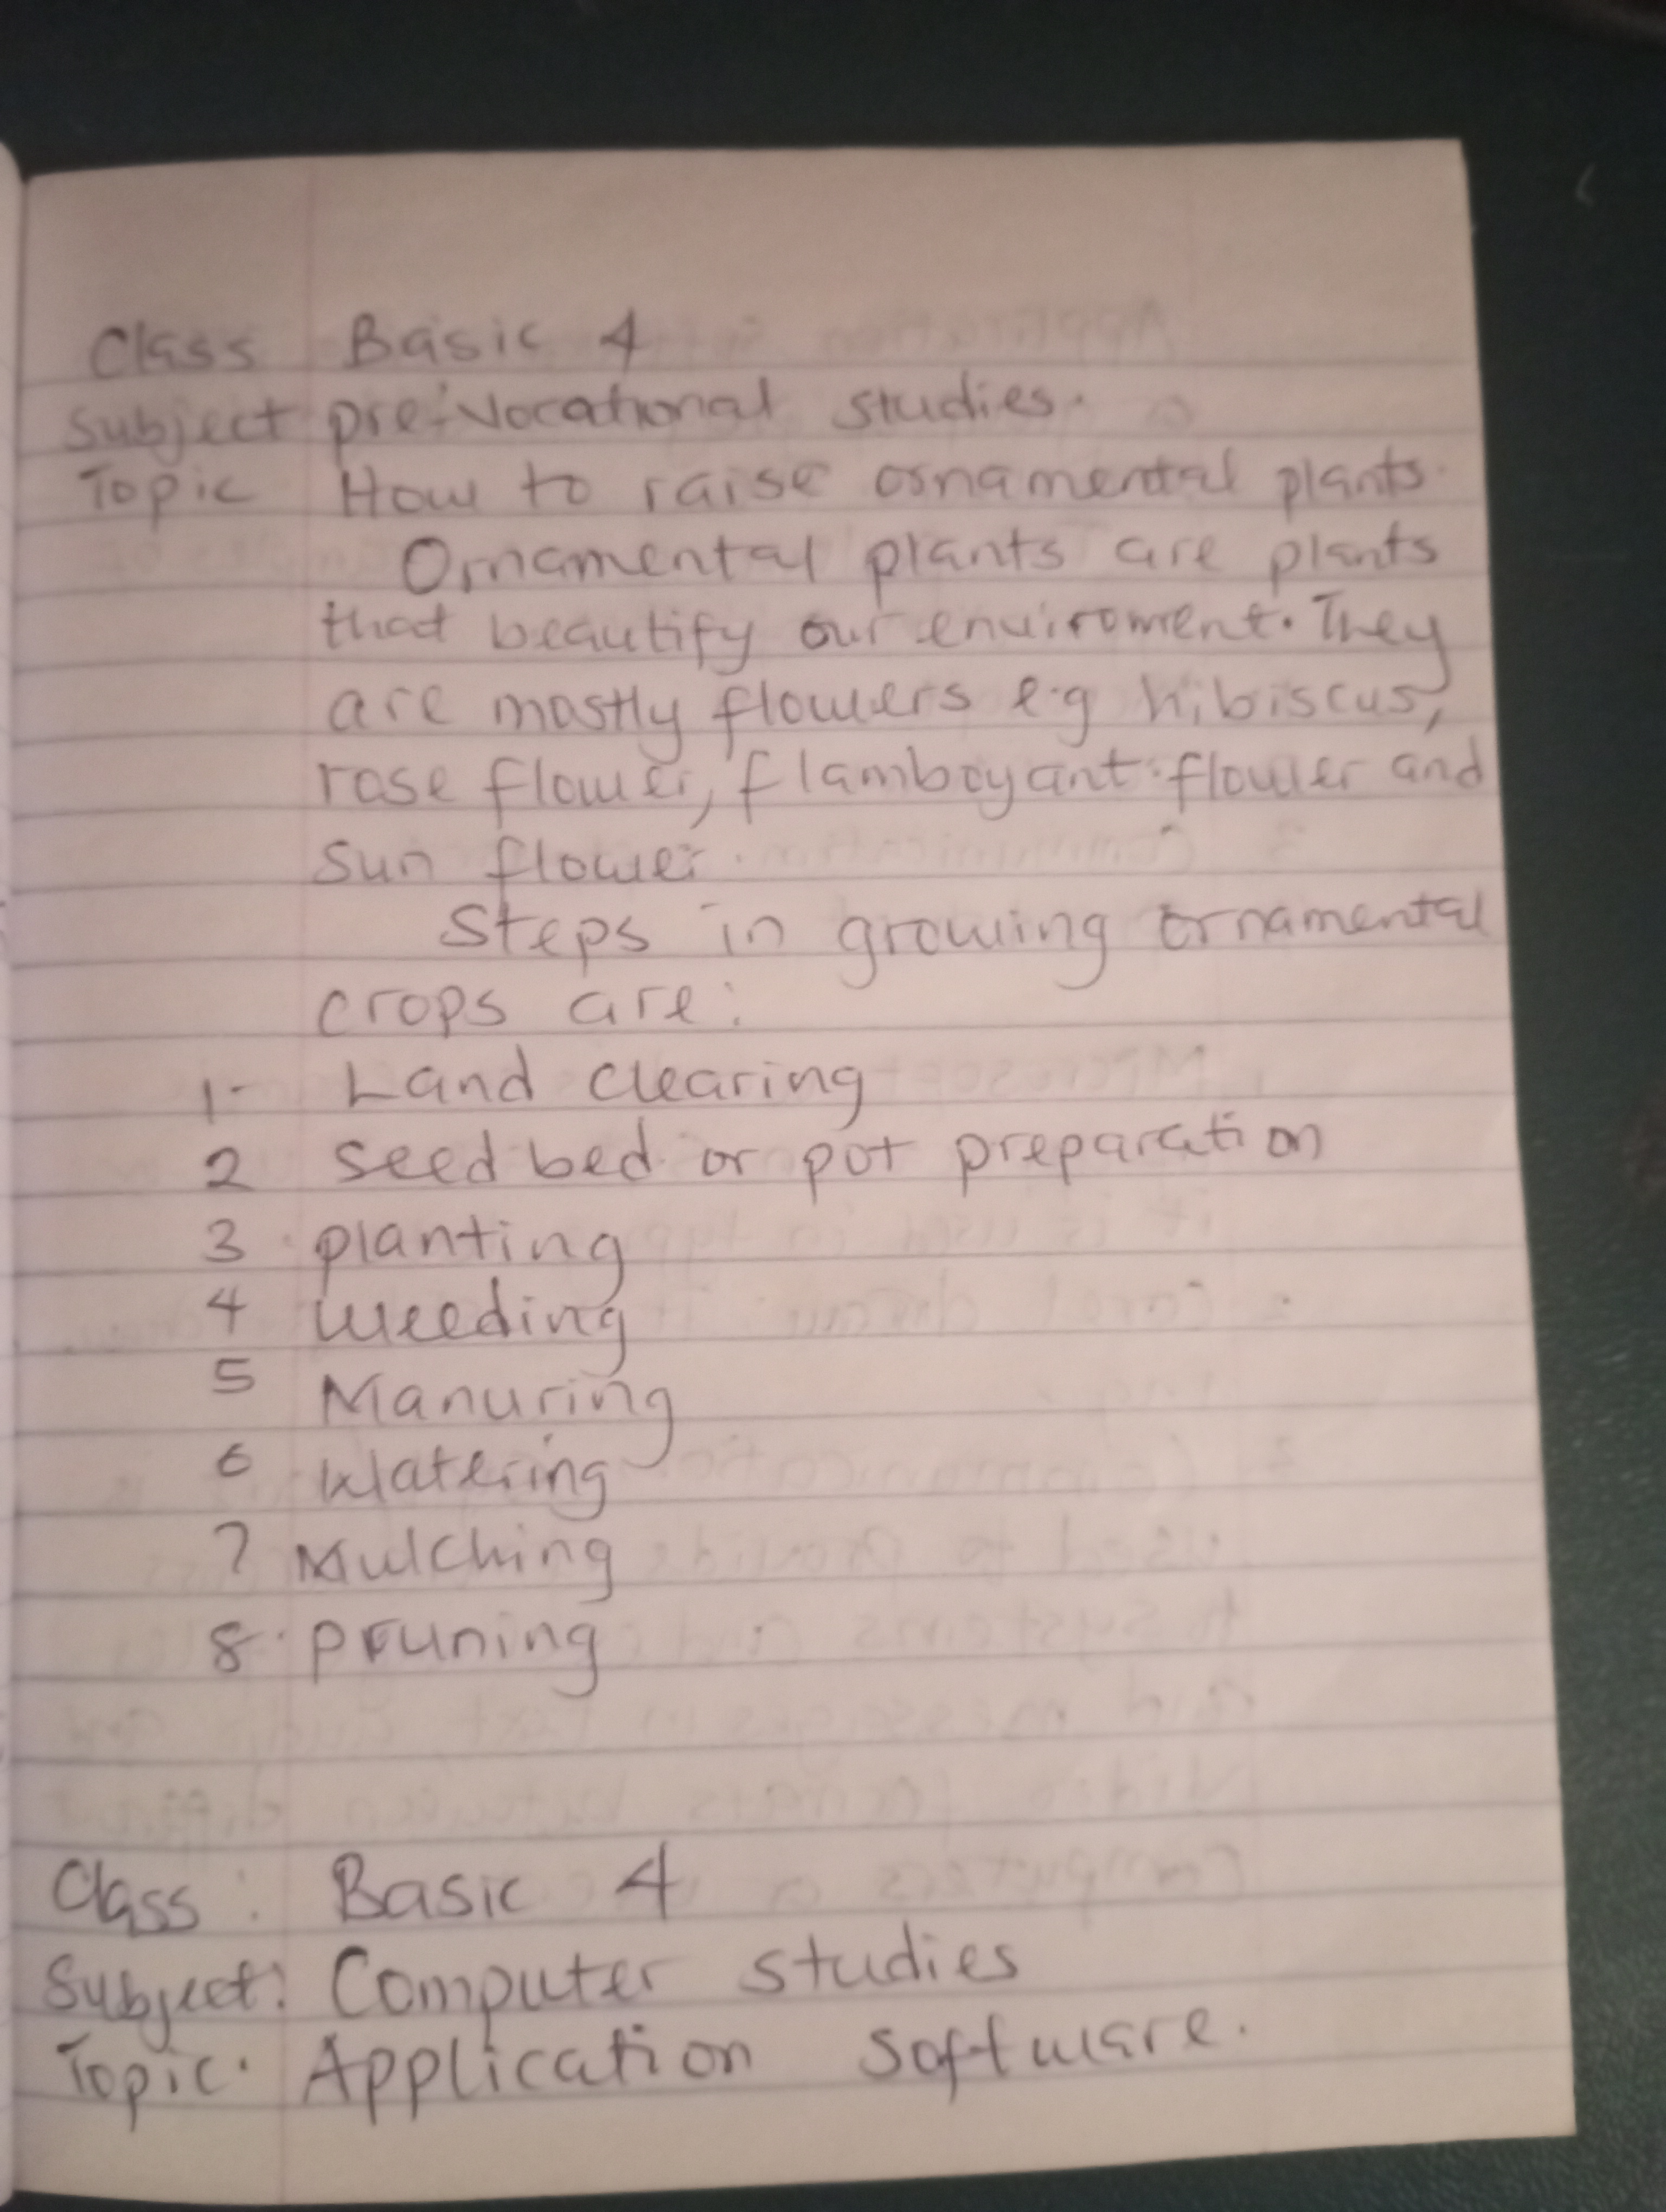 Class Basic 4
Subject pre-vocational studies.
Topic How to raise ornamental plants.
Ornamental plants are plants
that beautify our enviroment. They
are mostly flowers e.g hibiscus,
rose flower, flamboyant flower and
Sun flower.
Steps in growing ornamental
crops are:
1- Land clearing
2 seed bed or pot preparation
3 planting
4 weeding
5 Manuring
6 Watering
7 Mulching
8. pruning
Class: Basic 4
Subject: Computer studies
Topic. Application software.